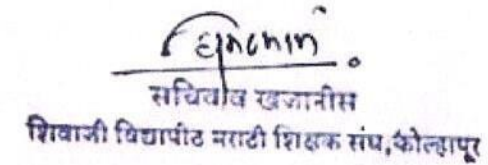 सचिव व खजानीस
शिवाजी विद्यापीठ मराठी शिक्षक संघ, कोल्हापूर